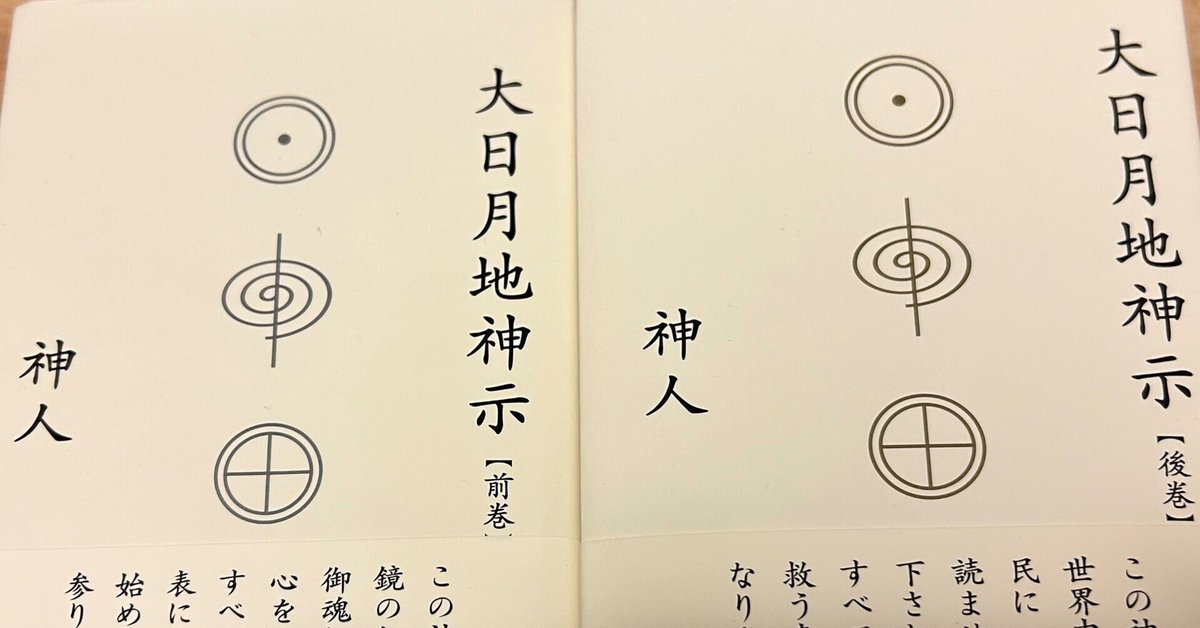 大日月地神示【前巻】
神人
この
鏡の
御魂
心を
すべ
表に
始め
参り
大日月地神示【後巻】
神人
この神
世界
民に
読ま
下さ
すべ
救う
なり